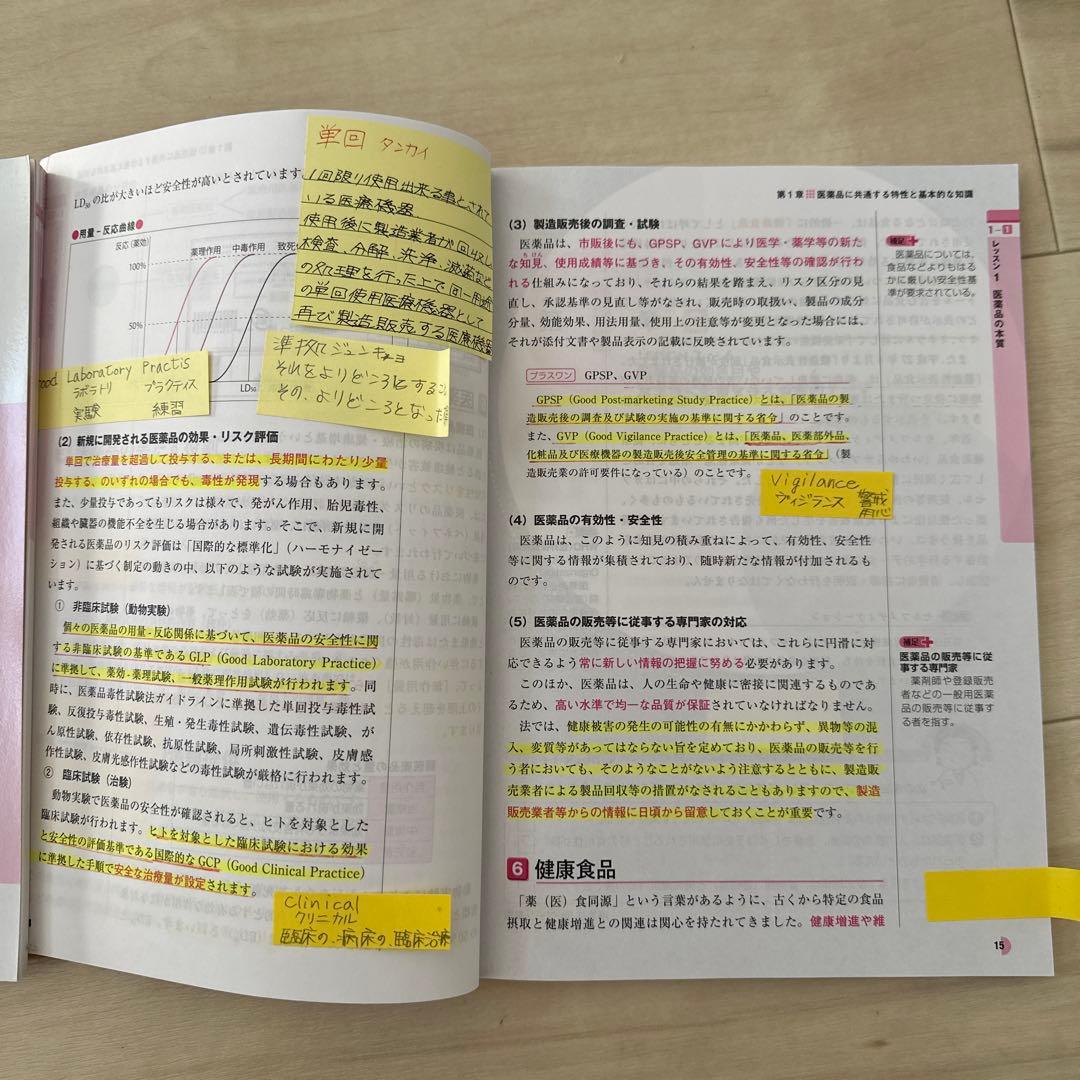 LD50 の比が大きいほど安全性が高いとされています。
●用量−反応曲線●
反応(薬効)
薬理作用 中毒作用 致死
100%
50%
LD50
単回 タンカイ
1回限り使用出来る事とされて
いる医療機器
使用後に製造業者が回収し
検査、分解、洗浄、滅菌など
の処理を行った上で同一用途
の単回使用医療機器として
再び製造販売する医療機器
準拠 ジュンキョ
それをよりどころにすること
その、よりどころとなった事
Good Laboratory Practis
ラボラトリ プラクティス
実験 練習
(2)新規に開発される医薬品の効果・リスク評価
単回で治療量を超過して投与する、または、長期間にわたり少量
投与する、のいずれの場合でも、毒性が発現する場合もあります。
また、少量投与であってもリスクは様々で、発がん作用、胎児毒性、
組織や臓器の機能不全を生じる場合があります。そこで、新規に開
発される医薬品のリスク評価は「国際的な標準化」(ハーモナイゼー
ション)に基づく制定の動きの中、以下のような試験が実施されて
います。
① 非臨床試験(動物実験)
個々の医薬品の用量-反応関係に基づいて、医薬品の安全性に関
する非臨床試験の基準であるGLP(Good Laboratory Practice)
に準拠して、薬効-薬理試験、一般薬理作用試験が行われます。同
時に、医薬品毒性試験法ガイドラインに準拠した単回投与毒性試
験、反復投与毒性試験、生殖・発生毒性試験、遺伝毒性試験、が
ん原性試験、依存性試験、抗原性試験、局所刺激性試験、皮膚感
作性試験、皮膚光感作性試験などの毒性試験が厳格に行われます。
② 臨床試験(治験)
動物実験で医薬品の安全性が確認されると、ヒトを対象とした
臨床試験が行われます。ヒトを対象とした臨床試験における効果
と安全性の評価基準である国際的なGCP(Good Clinical Practice)
に準拠した手順で安全な治療量が設定されます。
Clinical
クリニカル
臨床の、病床の、臨床治療
第1章 医薬品に共通する特性と基本的な知識
(3)製造販売後の調査・試験
医薬品は、市販後にも、GPSP、GVPにより医学・薬学等の新た
な知見、使用成績等に基づき、その有効性、安全性等の確認が行わ
ちけん
れる仕組みになっており、それらの結果を踏まえ、リスク区分の見
直し、承認基準の見直し等がなされ、販売時の取扱い、製品の成分
分量、効能効果、用法用量、使用上の注意等が変更となった場合には、
それが添付文書や製品表示の記載に反映されています。
プラスワン GPSP、GVP
GPSP(Good Post-marketing Study Practice)とは、「医薬品の製
造販売後の調査及び試験の実施の基準に関する省令」のことです。
また、GVP(Good Vigilance Practice)とは、「医薬品、医薬部外品、
化粧品及び医療機器の製造販売後安全管理の基準に関する省令」(製
造販売業の許可要件になっている)のことです。
Vigilance
ヴィジランス 警戒
用心
(4)医薬品の有効性・安全性
医薬品は、このように知見の積み重ねによって、有効性、安全性
等に関する情報が集積されており、随時新たな情報が付加されるも
のです。
(5)医薬品の販売等に従事する専門家の対応
医薬品の販売等に従事する専門家においては、これらに円滑に対
応できるよう常に新しい情報の把握に努める必要があります。
このほか、医薬品は、人の生命や健康に密接に関連するものであ
るため、高い水準で均一な品質が保証されていなければなりません。
法では、健康被害の発生の可能性の有無にかかわらず、異物等の混
入、変質等があってはならない旨を定めており、医薬品の販売等を行
う者においても、そのようなことがないよう注意するとともに、製造販
売業者による製品回収等の措置がなされることもありますので、製造
販売業者等からの情報に日頃から留意しておくことが重要です。
6 健康食品
「薬(医)食同源」という言葉があるように、古くから特定の食品
摂取と健康増進との関連は関心を持たれてきました。健康増進や維
補足+
医薬品については、
食品などよりもはる
かに厳しい安全性基
準が要求されている。
補足+
医薬品の販売等に従
事する専門家
薬剤師や登録販売
者などの一般用医薬
品の販売等に従事す
る者を指す。
1−1
レッスン1 医薬品の本質
15